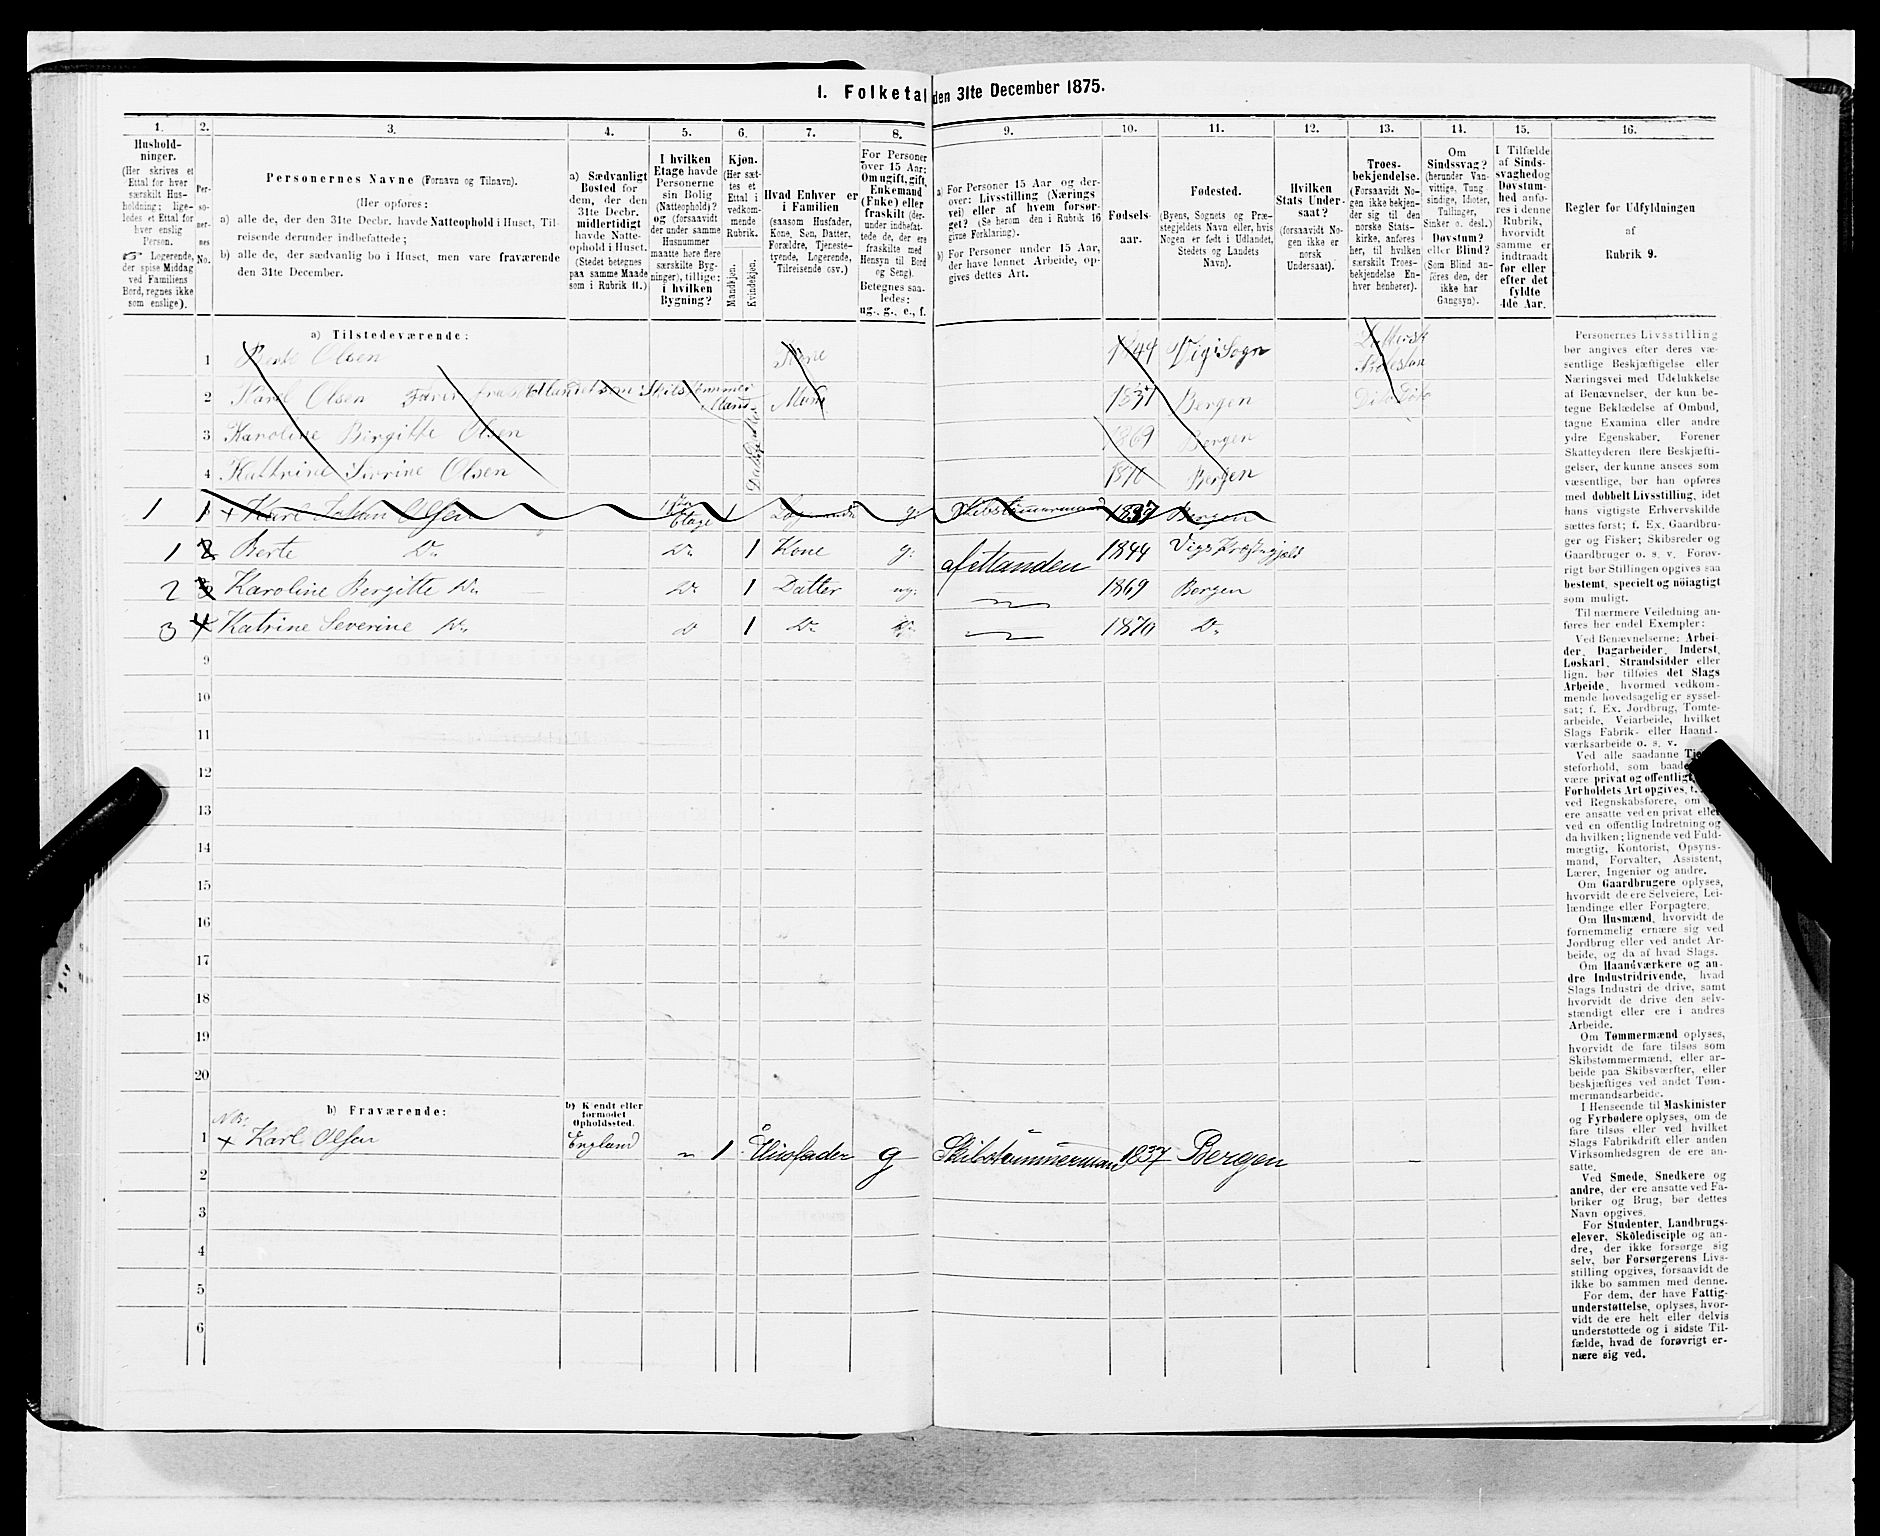 1. Folketal den 31te December 1875.
1. 2. 3. 4. 5. 6. 7. 8. 9. 10. 11. 12. 13. 14. 15. 16.
Hushold-
ninger.
(Her skrives et
Ettal for hver
særskilt Hus-
holdning; lige-
ledes et Ettal for
hver enslig
Person.
Logerende,
der spise Middag
ved Familiens
Bord, regnes ikke
som enslige).
Per-
so-
ner-
nes
No.
Personernes Navne (Fornavn og Tilnavn).
(Her opføres:
a) alle de, der den 31te Decbr. havde Natteophold i Huset, Til-
reisende derunder indbefattede;
b) alle de, der sædvanlig bo i Huset, men vare fraværende
den 31te December.
a) Sædvanligt
Bosted for
dem, der den
31te Decbr.
midlertidigt
havde Natte-
ophold i Huset.
(Stedet betegnes
paa samme Maade
som i Rubrik 11.)
I hvilken
Etage havde
Personerne
sin Bolig
(Natteophold)?
og (forsaavidt
der under samme
Husnummer
maatte høre flere
særskilte Byg-
ninger), tillige:
i hvilken
Bygning?
Kjøn.
(Her sæt-
tes et
Ettal i
vedkom-
mende
Rubrik.
Mandkjøn.
Kvindekjøn.
Hvad Enhver er
i Familien
(saasom Husfader,
Kone, Søn, Datter,
Forældre, Tjeneste-
tyende, Logerende,
Tilreisende osv.)
For Personer
over 15 Aar:
Om ugift, gift,
Enkemand
(Enke) eller
fraskilt (der-
under indbefat-
tede de, der ere
fraskilte med
Hensyn til Bord
og Seng).
Betegnes saa-
ledes:
ug., g., e., f.
a) For Personer 15 Aar og der-
over: Livsstilling (Nærings-
vei) eller af hvem forsør-
get? (Se herom den i Rubrik 16
givne Forklaring).
b) For Personer under 15 Aar,
der have lønnet Arbeide, op-
gives dettes Art.
Fødsels-
aar.
Fødested.
(Byens, Sognets og Præ-
stegjeldets Navn eller, hvis
Nogen er født i Udlandet,
Stedets og Landets
Navn).
Hvilken
Stats Under-
saat?
(forsaavidt No-
gen ikke er
norsk
Undersaat).
Troes-
bekjendelse.
(Forsaavidt No-
gen ikke bekjen-
der sig til den
norske Stats-
kirke, anføres
her, til hvilken
særskilt Troes-
bekjendelse En-
hver henhører).
Om
Sindssvag?
(herunder Van-
vittige, Tung-
sindige, Idioter,
Tullinger,
Sinker o. desl.)
Døvstum?
eller Blind?
(Som Blind an-
føres den, der
ikke har
Gangsyn).
I Tilfælde
af Sinds-
svaghed og
Døvstum-
hed anfø-
res i denne
Rubrik,
hvorvidt
samme er
indtraadt
før eller
efter det
fyldte
4de Aar.
Regler for Udfyldningen
af
Rubrik 9.
a) Tilstedeværende:
1 Berte Olsen Kone 1844 Vig i Sogn
2 Karel Olsen Mand 1837 Bergen
3 Karoline Birgitte Olsen 1869 Bergen
4 Kattrine Sivrine Olsen 1870 Bergen
1 1 + Karl Johan Olsen Etage 1 g. Skibstømmermand 1837 Bergen
1 2 Berte Do Do 1 Kone g. af Manden 1844 Vigs Præstegjæld
2 3 Karoline Bergitte Do Do 1 Datter ug. 1869 Bergen
3 4 Katrine Severine Do D 1 Do 1870 Do
9
10
11
12
13
14
15
16
17
18
19
20
b) Fraværende:
b) Kjendt eller
formodet
Opholdssted.
1 + Karl Olsen England 1 Husfader g Skibstømmermand 1837 Bergen
2
3
4
5
6
Personernes Livsstilling
bør angives efter deres væ-
sentlige Beskjæftigelse eller
Næringsvei med Udelukkelse
af Benævnelser, der kun be-
tegne Beklædelse af Ombud,
tagne Examina eller andre
ydre Egenskaber. Forener
Skatteyderen flere Beskjæfti-
gelser, der kunne ansees som
væsentlige, bør han opføres
med dobbelt Livsstilling, idet
hans vigtigste Erhvervskilde
sættes først; f. Ex. Gaardbru-
ger og Fisker; Skibsreder og
Gaardbruger o. s. v. Forøv-
rigt bør Stillingen opgives saa
bestemt, specielt og nøiagtigt
som muligt.
Til nærmere Veiledning an-
føres her endel Exempler:
Ved Benævnelserne: Arbei-
der, Dagarbeider, Inderst,
Løskarl, Strandsidder eller
lign. bør tilføies det Slags
Arbeide, hvormed vedkom-
mende hovedsagelig er syssel-
sat; f. Ex. Jordbrug, Tomte-
arbeide, Veiarbeide, hvilket
Slags Fabrik- eller Haand-
værksarbeide o. s. v.
Ved alle saadanne
steforhold, som baade
være privat og offentligt,
Forholdets Art opgives,
ved Regnskabsførere, om
ere ansatte ved en privat eller
ved en offentlig Indretning og
da hvilken; lignende ved Fuld-
mægtig, Kontorist, Opsyns-
mand, Forvalter, Assistent,
Lærer, Ingeniør og andre.
Om Gaardbrugere oplyses,
hvorvidt de ere Selveiere, Lei-
lændinge eller Forpagtere.
Om Husmænd, hvorvidt de
fornemmelig ernære sig ved
Jordbrug eller ved andet Ar-
beide, og da af hvad Slags.
Om Haandværkere og an-
dre Industridrivende, hvad
Slags Industri de drive, samt
hvorvidt de drive den selv-
stændigt eller ere i andres
Arbeide.
Om Tømmermænd oplyses,
hvorvidt de fare tilsøs som
Skibstømmermænd, eller ar-
beide paa Skibsværfter, eller
beskjæftiges ved andet Tøm-
mermandsarbeide.
I Henseende til Maskinister
og Fyrbødere oplyses, om de
fare tilsøs eller ved hvilket
Slags Fabrikdrift eller anden
Virksomhedsgren de ere an-
satte.
Ved Smede, Snedkere og
andre, der ere ansatte ved Fa-
briker og Brug, bør dettes
Navn opgives.
For Studenter, Landbrugs-
elever, Skoledisciple og an-
dre, der ikke forsørge sig
selv, bør Forsørgerens Livs-
stilling opgives, forsaavidt de
ikke bo sammen med denne.
For dem, der have Fattig-
understøttelse, oplyses, hvor-
vidt de ere helt eller delvis
understøttede og i sidste Til-
fælde, hvad de forøvrigt er-
nære sig ved.